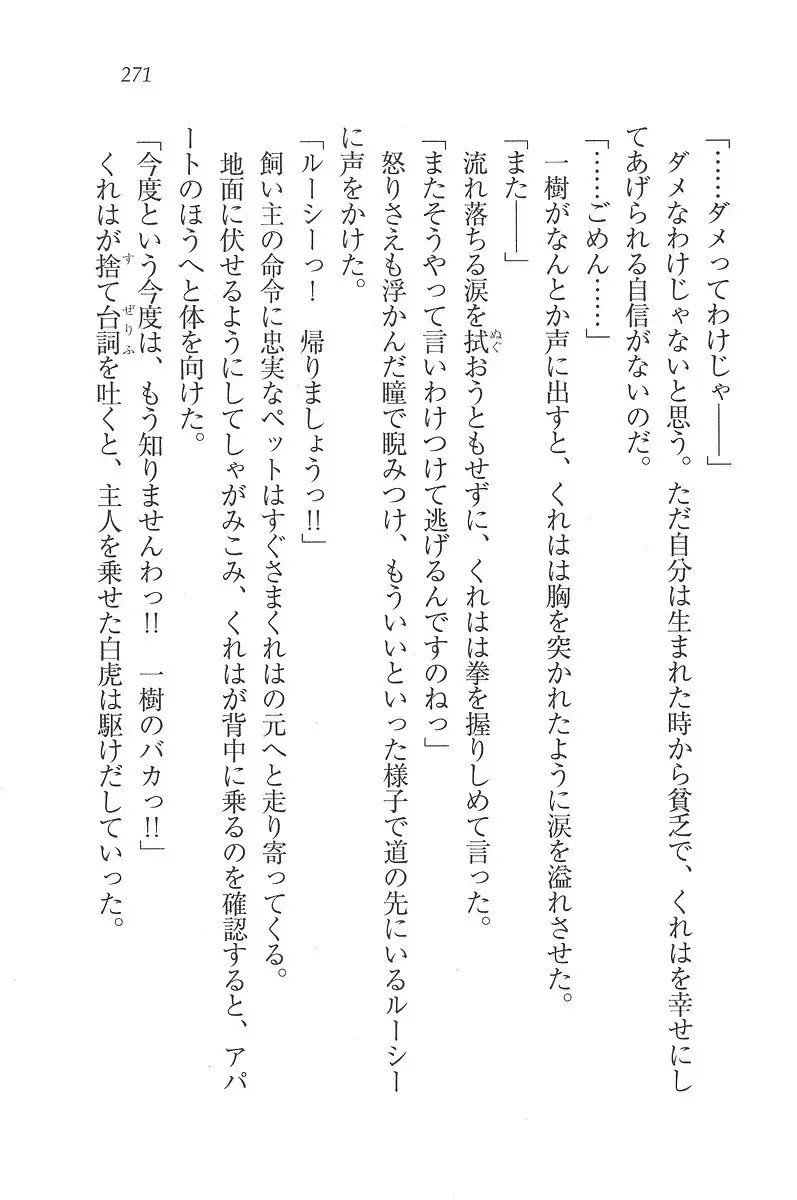 271
「……ダメってわけじゃ――」
ダメなわけじゃないと思う。ただ自分は生まれた時から貧乏で、くれはを幸せにし
てあげられる自信がないのだ。
「……ごめん……」
一樹がなんとか声に出すと、くれはは胸を突かれたように涙を溢れさせた。
「また――」
流れ落ちる涙を拭おうともせずに、くれはは拳を握りしめて言った。
ぬぐ
「またそうやって言いわけつけて逃げるんですのねっ」
怒りさえも浮かんだ瞳で睨みつけ、もういいといった様子で道の先にいるルーシー
に声をかけた。
「ルーシーっ！　帰りましょうっ!!」
飼い主の命令に忠実なペットはすぐさまくれはの元へと走り寄ってくる。
地面に伏せるようにしてしゃがみこみ、くれはが背中に乗るのを確認すると、アパ
ートのほうへと体を向けた。
「今度という今度は、もう知りませんわっ!!　一樹のバカっ!!」
くれはが捨て台詞を吐くと、主人を乗せた白虎は駆けだしていった。
す　ぜりふ